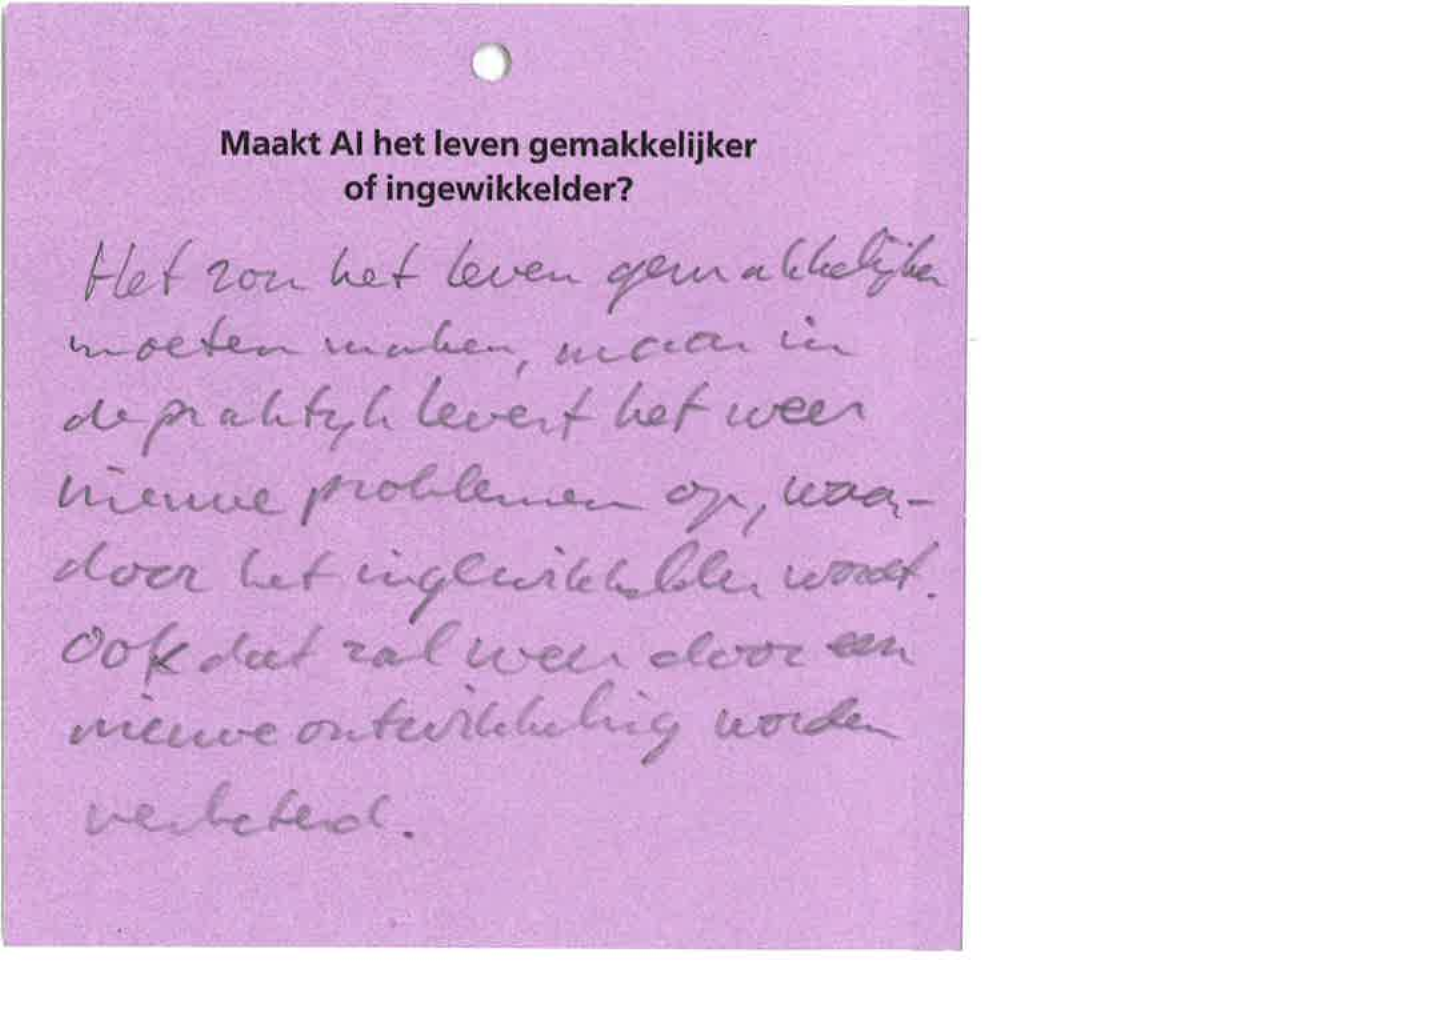 Maakt AI het leven gemakkelijker
of ingewikkelder?
Het zou het leven gemakkelijker
moeten maken, maar in
de praktijk levert het weer
nieuwe problemen op, waar-
door het ingewikkelder wordt.
Ook dat zal weer door een
nieuwe ontwikkeling worden
verbeterd.